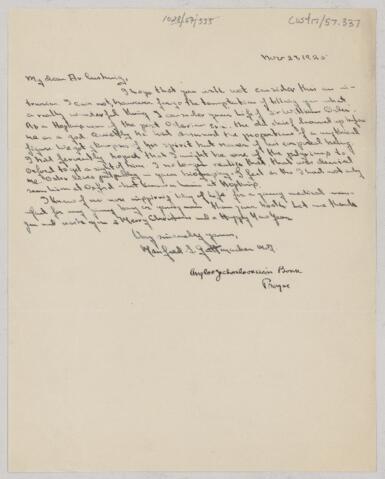 1028/57/335
CUS417/57.337
Nov 23, 1925
My dear Dr Cushing,
I hope that you will not consider this an in-
trusion. I can not, however, forgo the temptation of telling you what
a really wonderful thing I consider your Life of Sir William Osler.
As a Hopkins man of the post Oslerian era, the old chief loomed up before
me as a god. Quickly he had assumed the proportions of a mythical
figure. We got glimpses of his spirit but never of his corporeal being.
I had fervently hoped that I might be one of the pilgrims to
Oxford to get a sight of him. I no longer realize that that was denied
me. Osler lives palpably in your biography. I feel as tho I had not only
seen him at Oxford but known him at Hopkins.
I know of no more inspiring Way of Life for a young medical man
for any young boy or young man than your book. Let me thank
you and wish you a Merry Christmas and a Happy New Year.
Very sincerely yours,
Manfred S. Guttmacher M.D.
Anglo-Czechoslovakian Bank
Prague